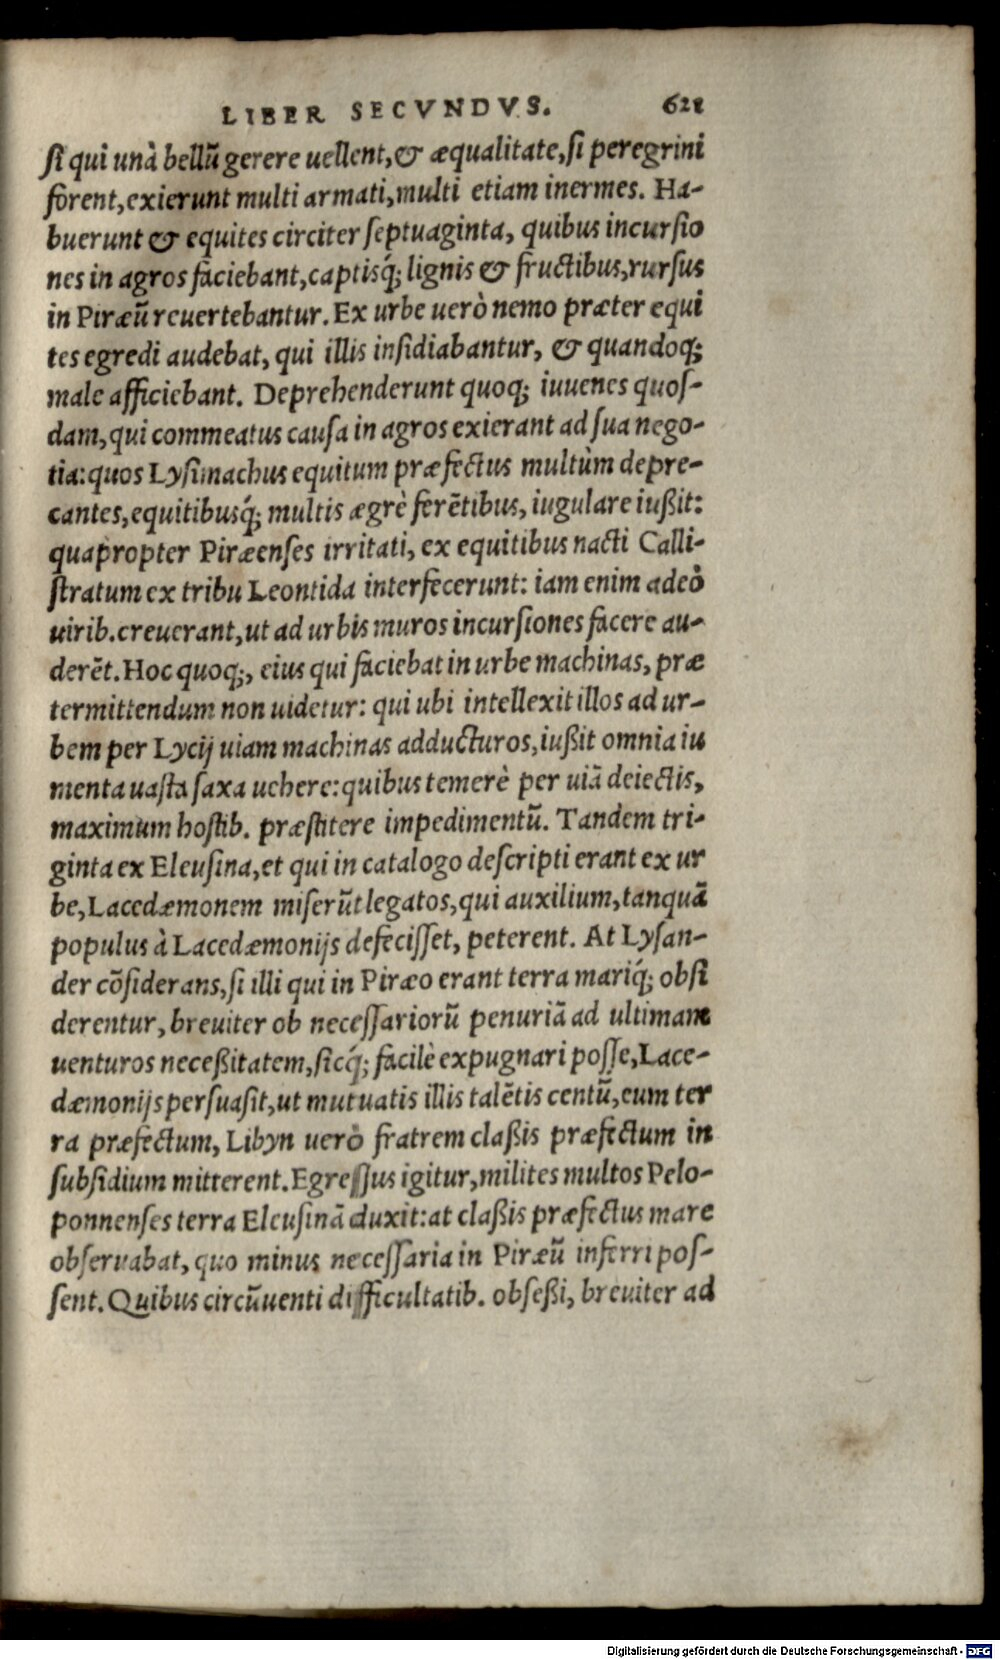 LIBER SECVNDVS. 621
si qui unà bellũ gerere uellent, & æqualitate, si peregrini
forent, exierunt multi armati, multi etiam inermes. Ha-
buerunt & equites circiter septuaginta, quibus incursio
nes in agros faciebant, captisq́; lignis & fructibus, rursus
in Piræũ reuertebantur. Ex urbe uerò nemo præter equi
tes egredi audebat, qui illis insidiabantur, & quandoq;
male afficiebant. Deprehenderunt quoq; iuuenes quos-
dam, qui commeatus causa in agros exierant ad sua nego-
tia: quos Lysimachus equitum præfectus multùm depre-
cantes, equitibusq́; multis ægrè ferẽtibus, iugulare iußit:
quapropter Piræenses irritati, ex equitibus nacti Calli-
stratum ex tribu Leontida interfecerunt: iam enim adeò
uirib. creuerant, ut ad urbis muros incursiones facere au-
derẽt. Hoc quoq;, eius qui faciebat in urbe machinas, præ
termittendum non uidetur: qui ubi intellexit illos ad ur-
bem per Lycij uiam machinas adducturos, iußit omnia iu
menta uasta saxa uehere: quibus temerè per uiã deiectis,
maximum hostib. præstitere impedimentũ. Tandem tri-
ginta ex Eleusina, et qui in catalogo descripti erant ex ur
be, Lacedæmonem miserũt legatos, qui auxilium, tanquã
populus à Lacedæmonijs defecisset, peterent. At Lysan-
der cõsiderans, si illi qui in Piræo erant terra mariq́; obsi
derentur, breuiter ob necessariorũ penuriã ad ultimam
uenturos neceßitatem, sicq́; facilè expugnari posse, Lace-
dæmonijs persuasit, ut mutuatis illis talẽtis centũ, eum ter
ra præfectum, Libyn uerò fratrem claßis præfectum in
subsidium mitterent. Egressus igitur, milites multos Pelo-
ponnenses terra Eleusinã duxit: at claßis præfectus mare
obseruabat, quo minus necessaria in Piræũ inferri pos-
sent. Quibus circũuenti difficultatib. obseßi, breuiter ad
Digitalisierung gefördert durch die Deutsche Forschungsgemeinschaft - DFG